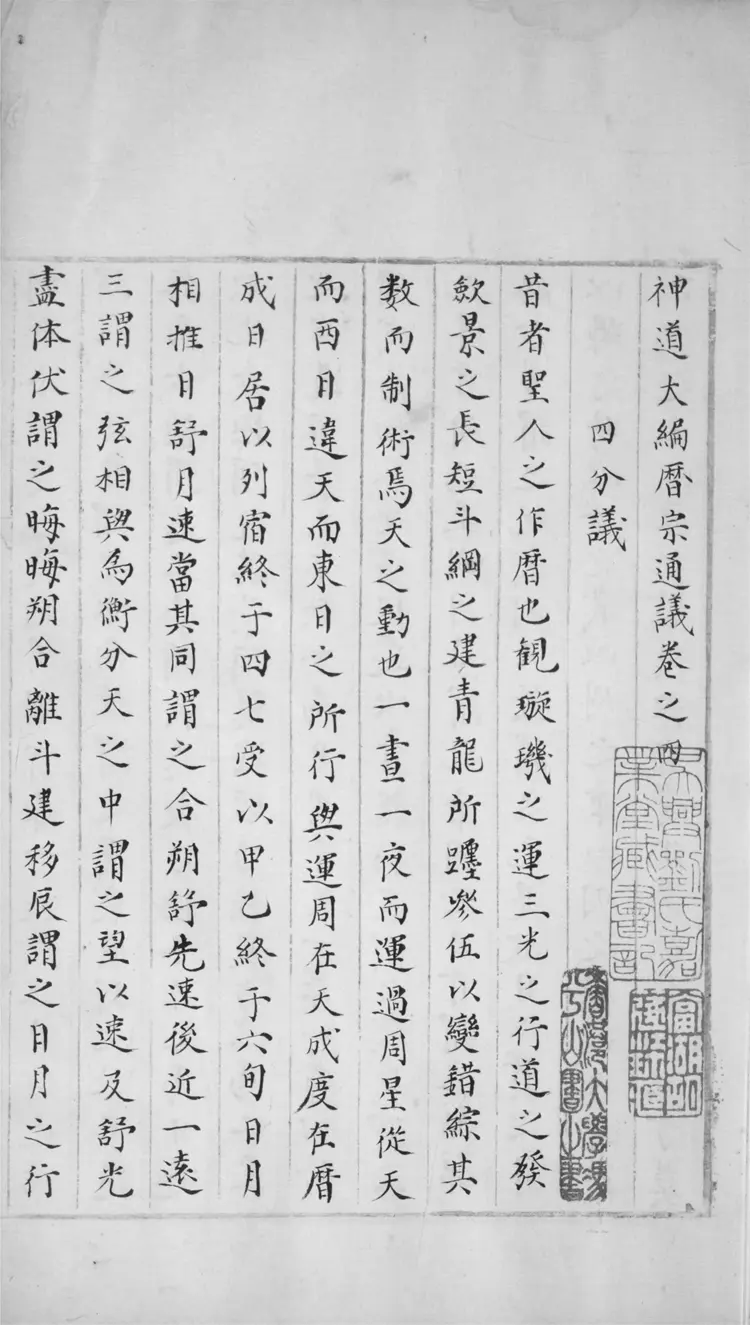 神道大編曆宗通議卷之四
四分議
昔者聖人之作曆也観璇璣之運三光之行道之發
歛景之長短斗綱之建青龍所躔參伍以變錯綜其
数而制術焉天之動也一晝一夜而運過周星從天
而西日違天而東日之所行與運周在天成度在曆
成日居以列宿終于四七受以甲乙終于六旬日月
相推日舒月速當其同謂之合朔舒先速後近一遠
三謂之弦相與為衡分天之中謂之望以速及舒光
盡体伏謂之晦晦朔合離斗建移辰謂之日月之行
吳興劉氏嘉
業堂藏書記